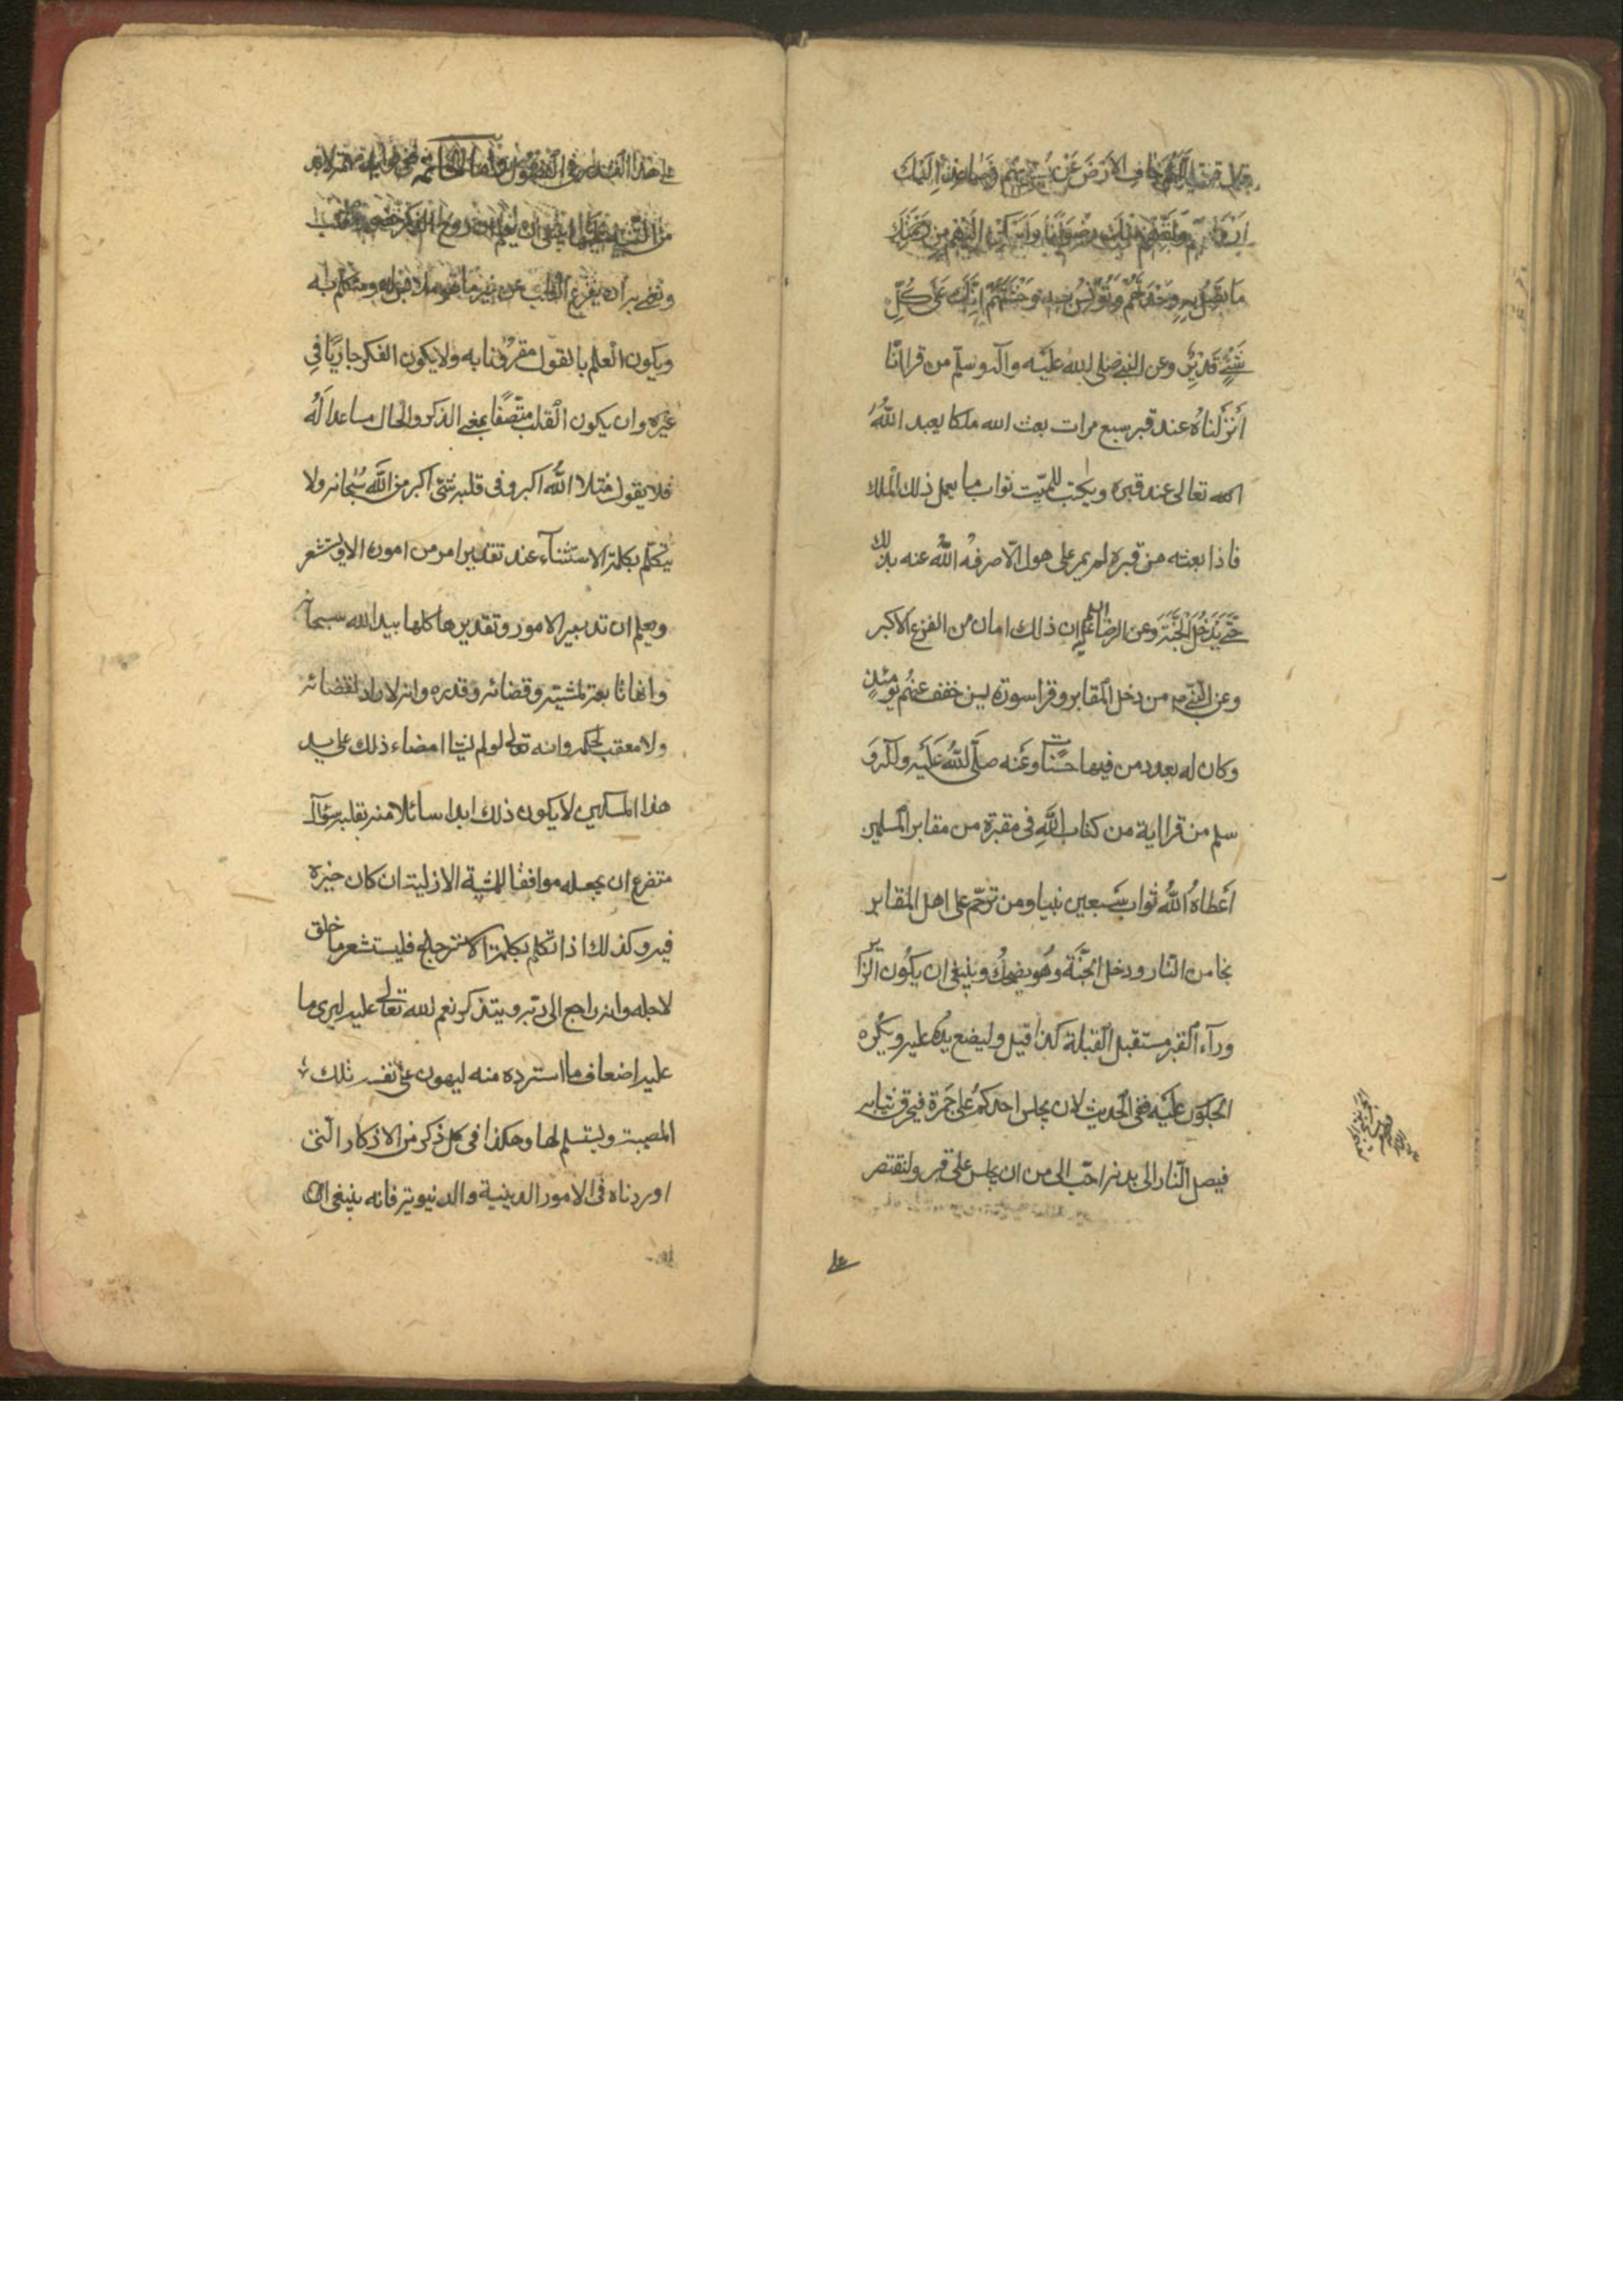 جاف الارض عن جنوبهم وصاعد اليك
ارواحهم ولقهم منك رضوانا واسكن اليهم من رحمتك
ما تصل به وحدتهم وتونس به وحشتهم انك على كل
شئ قدير وعن النبي صلى الله عليه وآله وسلم من قرا انا
أنزلناه عند قبر سبع مرات بعث الله ملكا يعبد الله
الله تعالى عند قبره ويكتب للميت ثواب ما يعمل ذلك الملك
فاذا بعثه من قبره لم يمر على هول الا صرفه الله عنه بذلك
حتى يدخل الجنة وعن الرضا ان ذلك امان من الفزع الاكبر
وعن النبي ص من دخل المقابر وقرا سورة يس خفف عنهم يومئذ
وكان له بعدد من فيها حسنات وعنه صلى الله عليه وآله و
سلم من قرا اية من كتاب الله في مقبرة من مقابر المسلمين
أعطاه الله ثواب سبعين نبيا ومن ترحم على اهل المقابر
نجا من النار ودخل الجنة وهو يضحك وينبغي ان يكون الزائر
ورآء القبر مستقبل القبلة كذا قيل وليضع يده عليه ويكره
الجلوس عليه ففي الحديث لان يجلس احدكم على جمرة فيحرق ثيابه
فيصل النار الى بدنه احب الى من ان يجلس على قبر ولنقتصر
على
على هذا القدر
من التنبيه عليها
وتغييره ان يفرغ القلب عن غير ما هو ملابس له ومتكلم به
ويكون العلم بالقول مقرونا به ولا يكون الفكر جاريا في
غيره وان يكون القلب متصفا بمعنى الذكر والحال مساعدا له
فلا يقول مثلا الله اكبر وفى قلبه شئ اكبر من الله سبحانه ولا
يتكلم بكلمة الاستثنآء عند تقدير امر من اموره الا ويستشعر
ويعلم ان تدبير الامور وتقديرها كلها بيد الله سبحانه
وانها تابعة لمشيته وقضائه وقدره وانه لا راد لقضائه
ولا معقب لحكمه وانه تعالى لو لم يشا امضاء ذلك على يد
هذا المسكين لا يكون ذلك ابدا سائلا منه بقلبه سؤال
متضرع ان يجعله موافقا للمشية الازلية ان كان خيره
فيه وكذلك اذا تكلم بكلمة الاسترجاع فليستشعر ما خلق
لاجله وانه راجع الى ربه ويتذكر نعم الله تعالى عليه ليرى ما
عليه اضعاف ما استرده منه ليهون على نفسه تلك
المصيبة ويستسلم لها وهكذا في كل ذكر من الاذكار التي
اوردناه في الامور الدينية والدنيوية فانه ينبغي ان